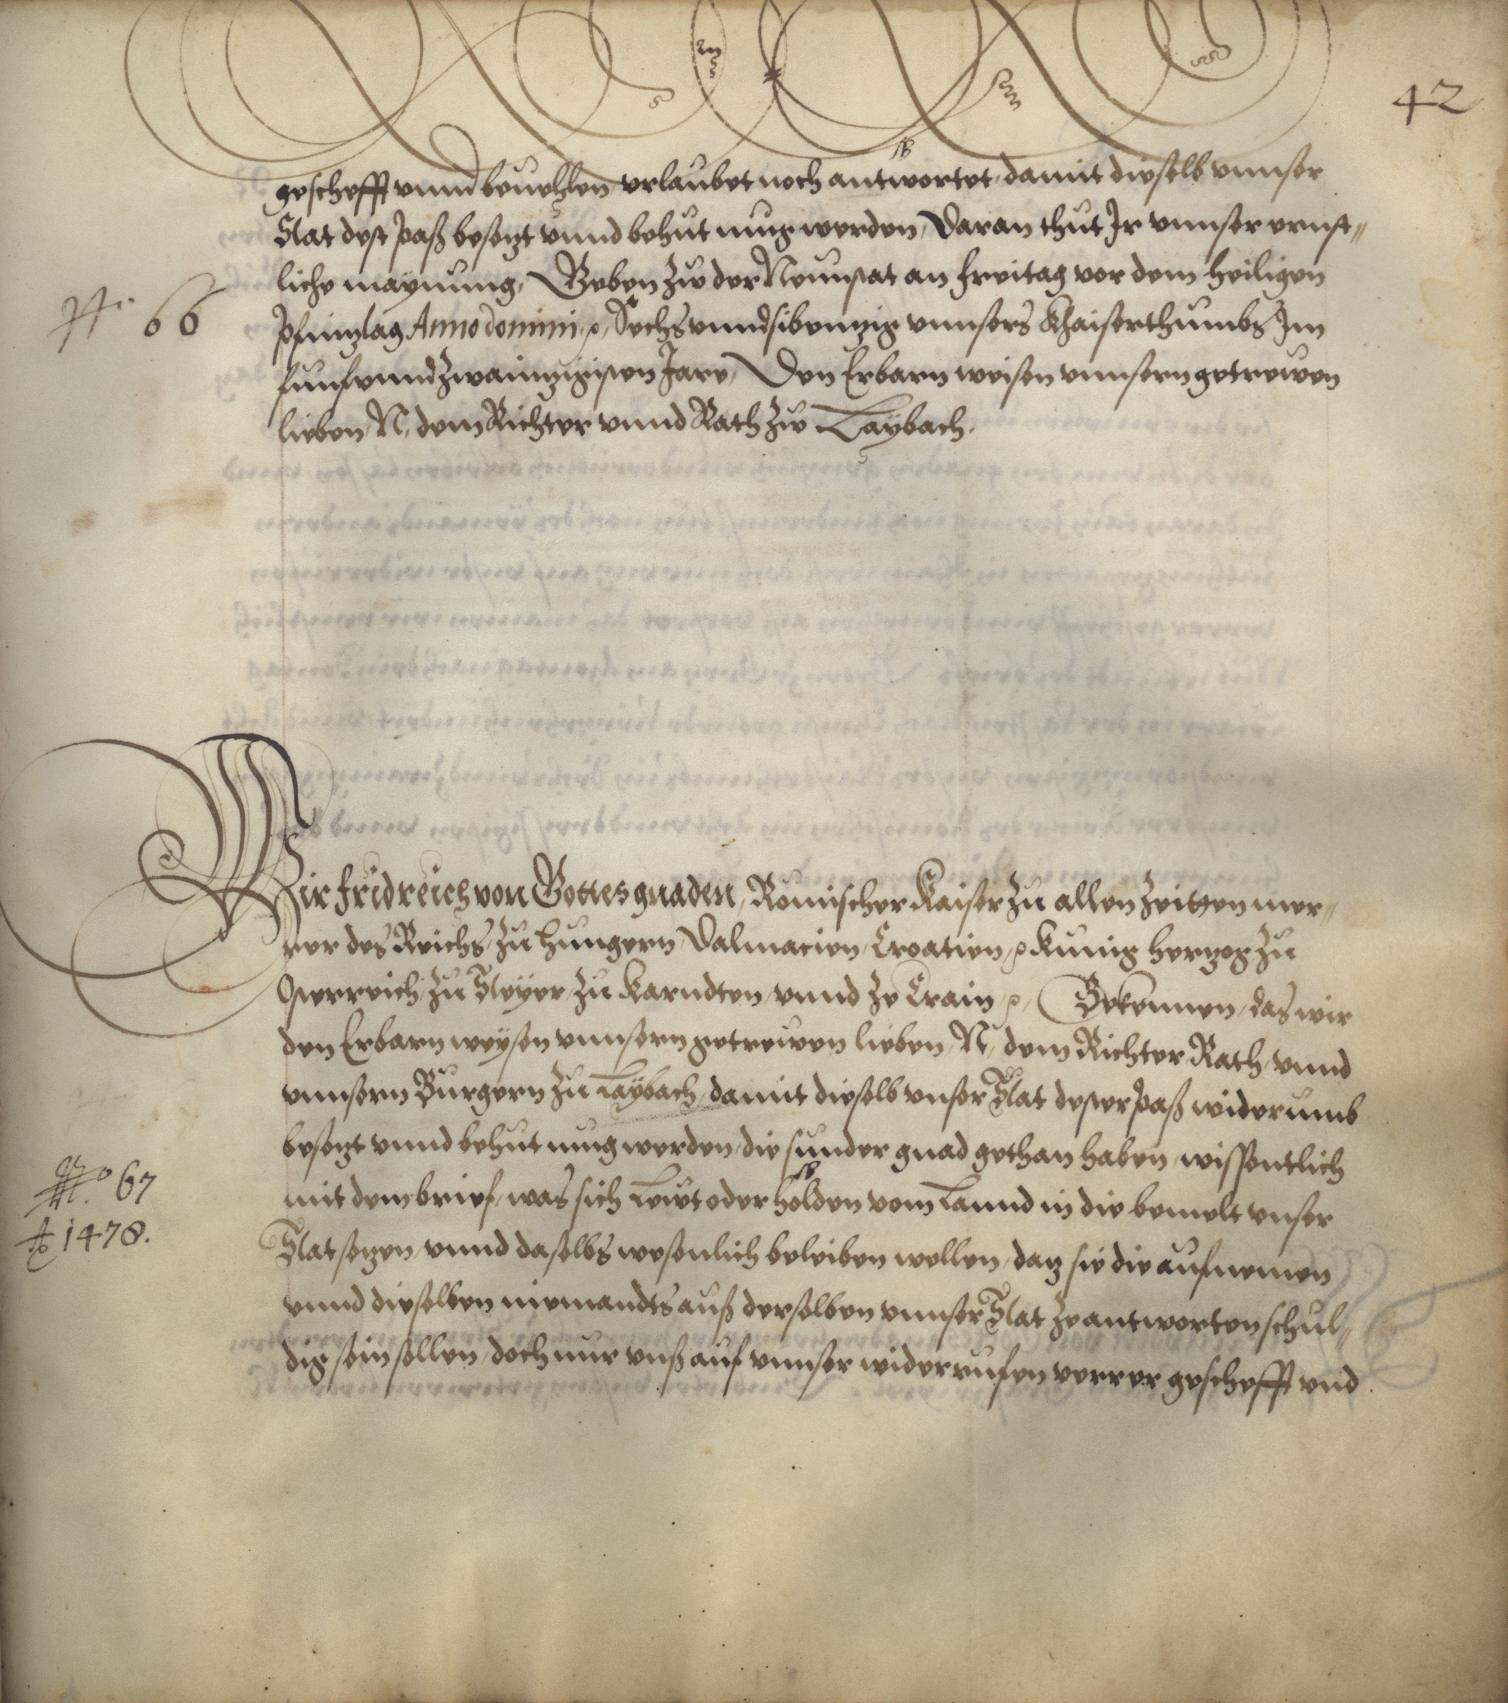 42
geschefft vnnd beuehlen, verlaubet noch antwortet, damit dieselb vnnser
Stat dest paß besezt vnnd behut mug werden, Daran thut Ir vnnser ernst„
liche maynung, Geben zw der Neunstat an freitag vor dem heiligen
66
Phinztag Anno domini, Sechs vnnd sibenzig vnnsers Khaiserthumbs Im
funfvnndzwainzigisten Jare, Den Erbarn weisen vnnsern getrewen
lieben N. dem Richter vnnd Rath zw Laybach.
Wir fridreich von Gottes gnaden, Romischer Kaiser zu allen Zeitten mer„
rer des Reichs, zu Hungern, Dalmacien, Croatien, Kunig herzog zu
Osterreich, zu Steyer, zu Karndten, vnnd ze Crain, Bekennen, das wir
den Erbarn weysen vnnsern getrewen lieben, N. dem Richter Rath, vnnd
vnnsern Burgern zu Laybach, damit dieselb vnser Stat dester paß widerumb
besezt vnnd behut mug werden, die sunder gnad gethan haben, wissentlich
67
mit dem brief, was sich Lewt oder holden vom Lannd in die bemelt vnser
1478.
Stat sezen, vnnd daselbs wesenlich beleiben wellen, daz sie die aufnemen
vnnd dieselben niemandts auß derselben vnnser Stat zeantworten schul„
dig sein sollen, doch nur vnß auf vnnser widerrufen verrer geschefft vnd